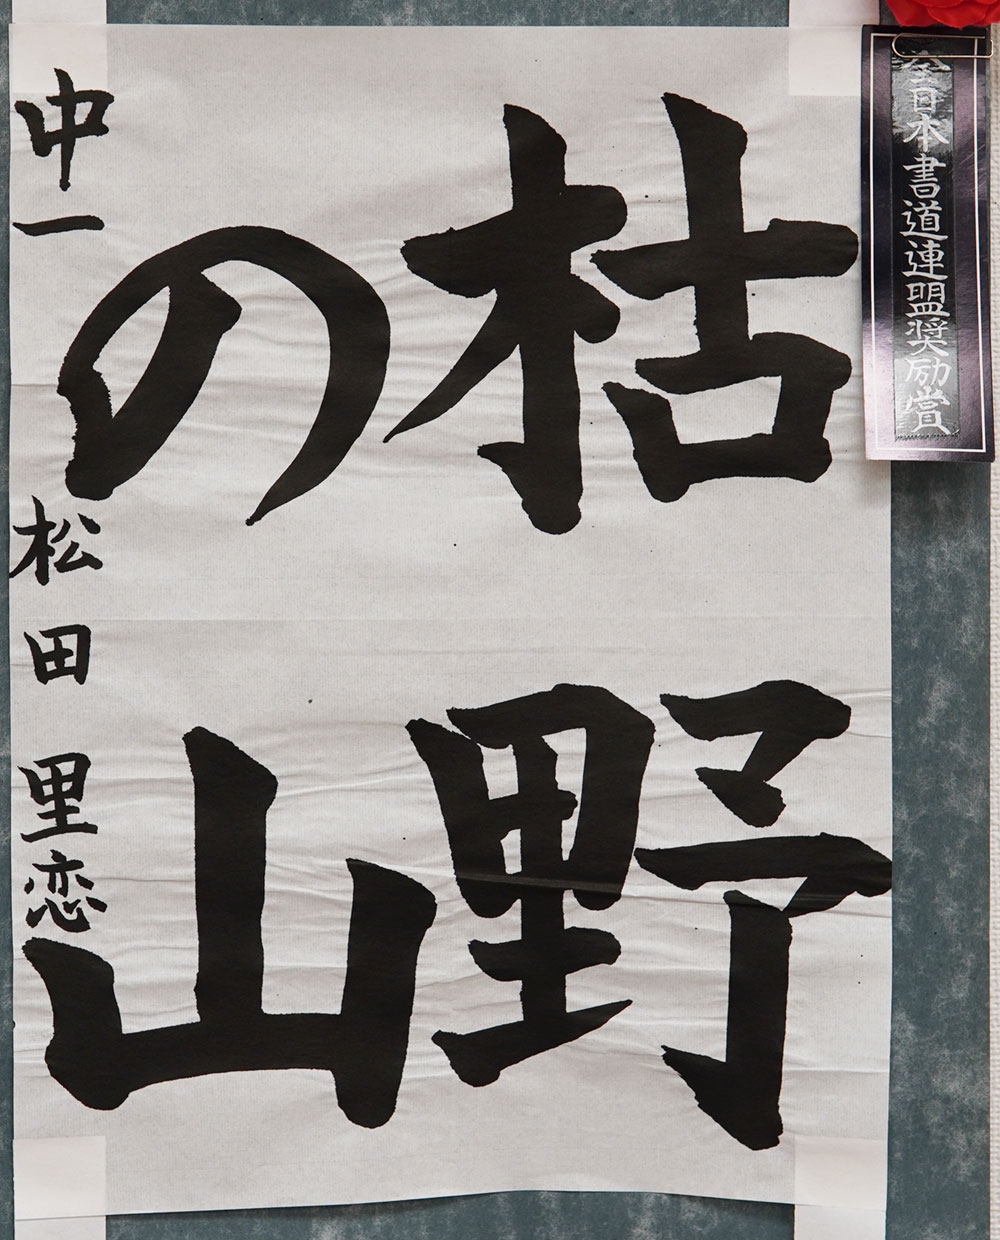 全日本書道連盟奨励賞
枯野
の山
中一 松田里恋